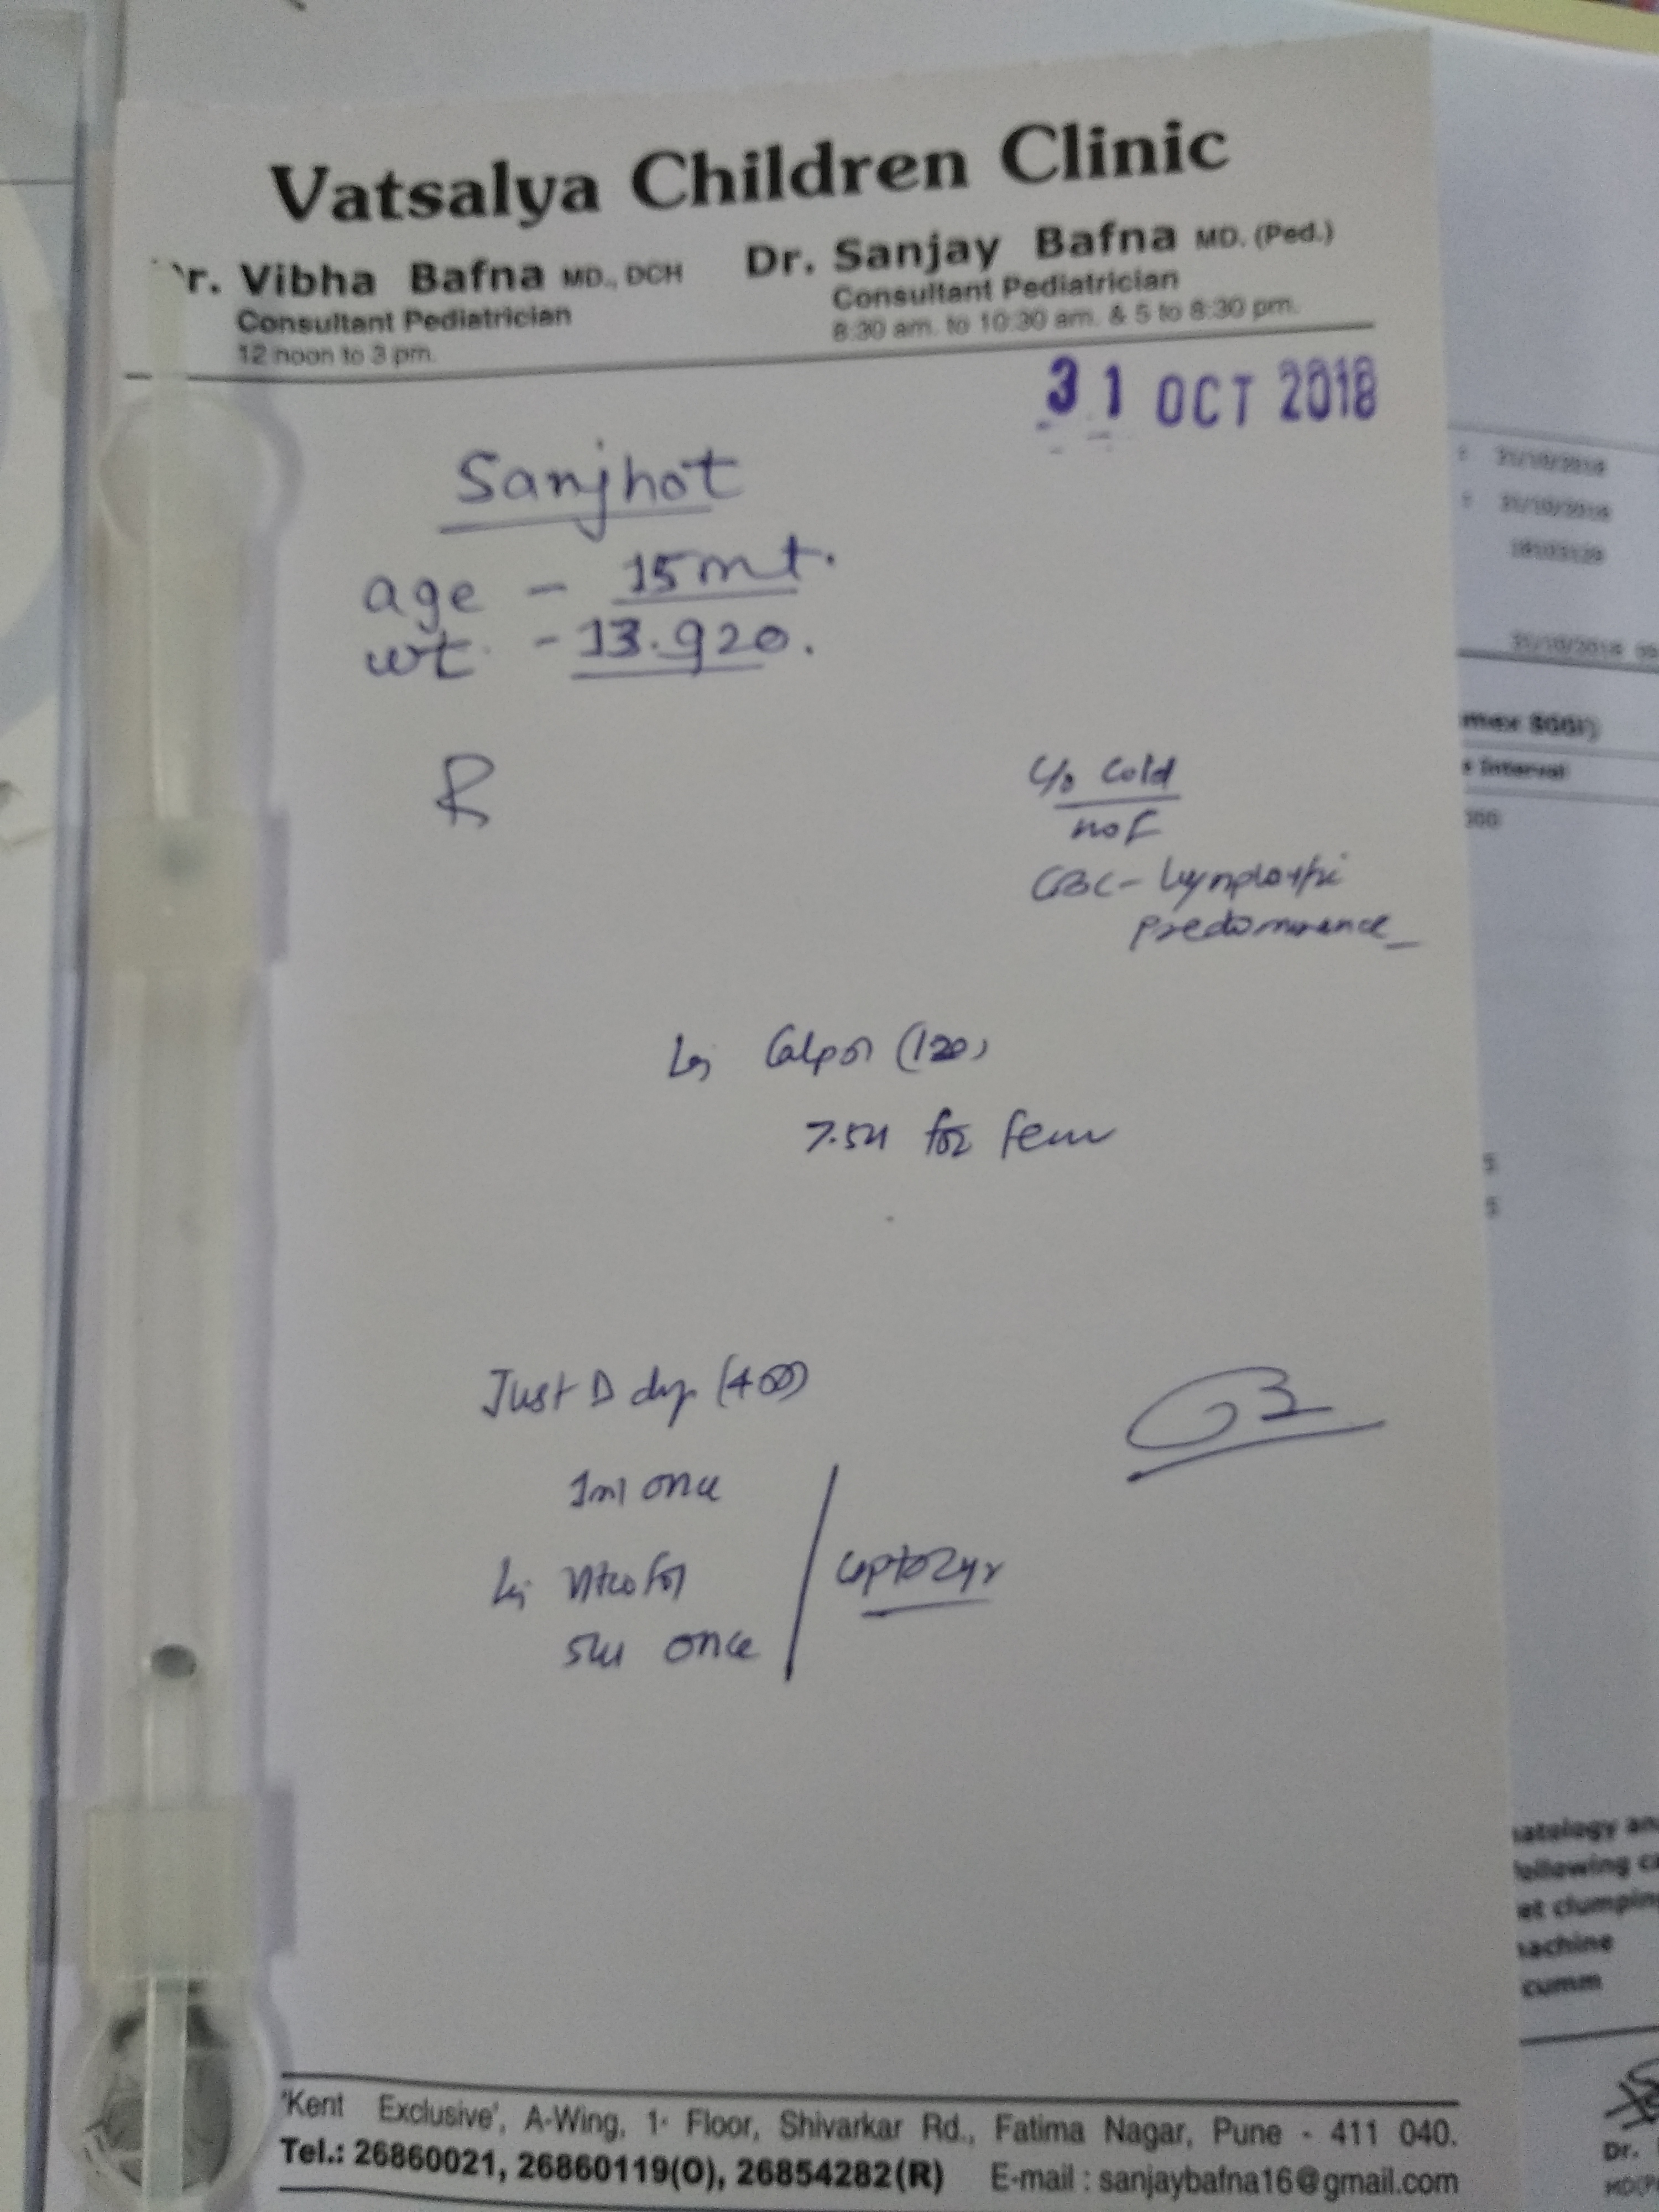 Vatsalya Children Clinic
r. Vibha Bafna MD., DCH
Consultant Pediatrician
12 noon to 3 pm.
Dr. Sanjay Bafna MD. (Ped.)
Consultant Pediatrician
8:30 am. to 10:30 am. & 5 to 8:30 pm.
31 OCT 2018
Sanjhot
age - 15mt.
wt. - 13.920.
R
C/o Cold
no F
CBC - Lymphothi
Predominance
Calpol (120)
7.5ml for fever
Just D drop (400)
1ml once
5ml once
'Kent Exclusive', A-Wing, 1st Floor, Shivarkar Rd., Fatima Nagar, Pune - 411 040.
Tel.: 26860021, 26860119(O), 26854282(R) E-mail : sanjaybafna16@gmail.com
31/10/2018
31/10/2018
31/10/2018
s Interval
000
5
5
atology an
following c
et clumpin
machine
cumm
Dr.